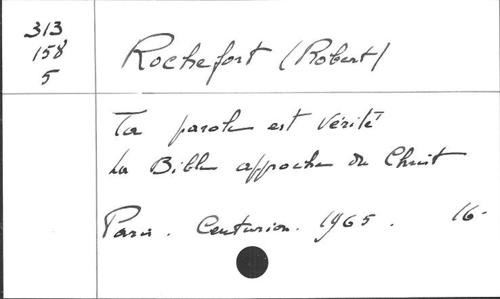 313
158
5
Rochefort (Robert)
Ta parole est vérité
La Bible approche du Christ
Paris. Centurion. 1965. 16-